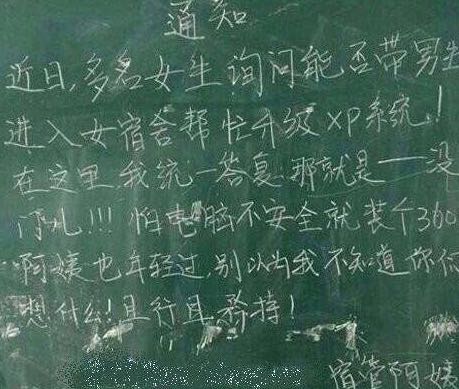 通知
近日,多名女生询问能否带男生
进入女宿舍帮忙升级XP系统!
在这里我统一答复那就是——没
门儿!!!怕电脑不安全就装个360
阿姨也年轻过,别以为我不知道你们
想什么!且行且矜持!
宿管阿姨